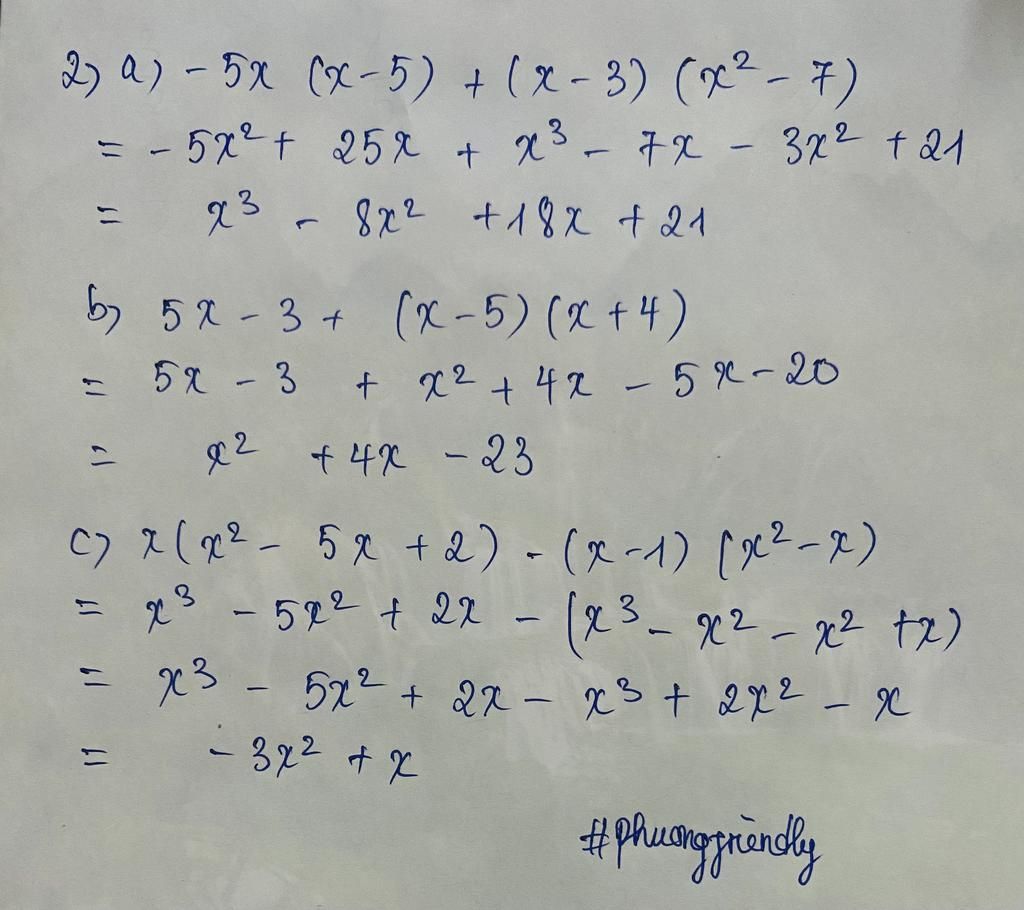 2) a) - 5x (x - 5) + (x - 3) (x² - 7)
= - 5x² + 25x + x³ - 7x - 3x² + 21
= x³ - 8x² + 18x + 21
b) 5x - 3 + (x - 5) (x + 4)
= 5x - 3 + x² + 4x - 5x - 20
= x² + 4x - 23
c) x (x² - 5x + 2) - (x - 1) (x² - x)
= x³ - 5x² + 2x - (x³ - x² - x² + x)
= x³ - 5x² + 2x - x³ + 2x² - x
= - 3x² + x
#phuongfriendly